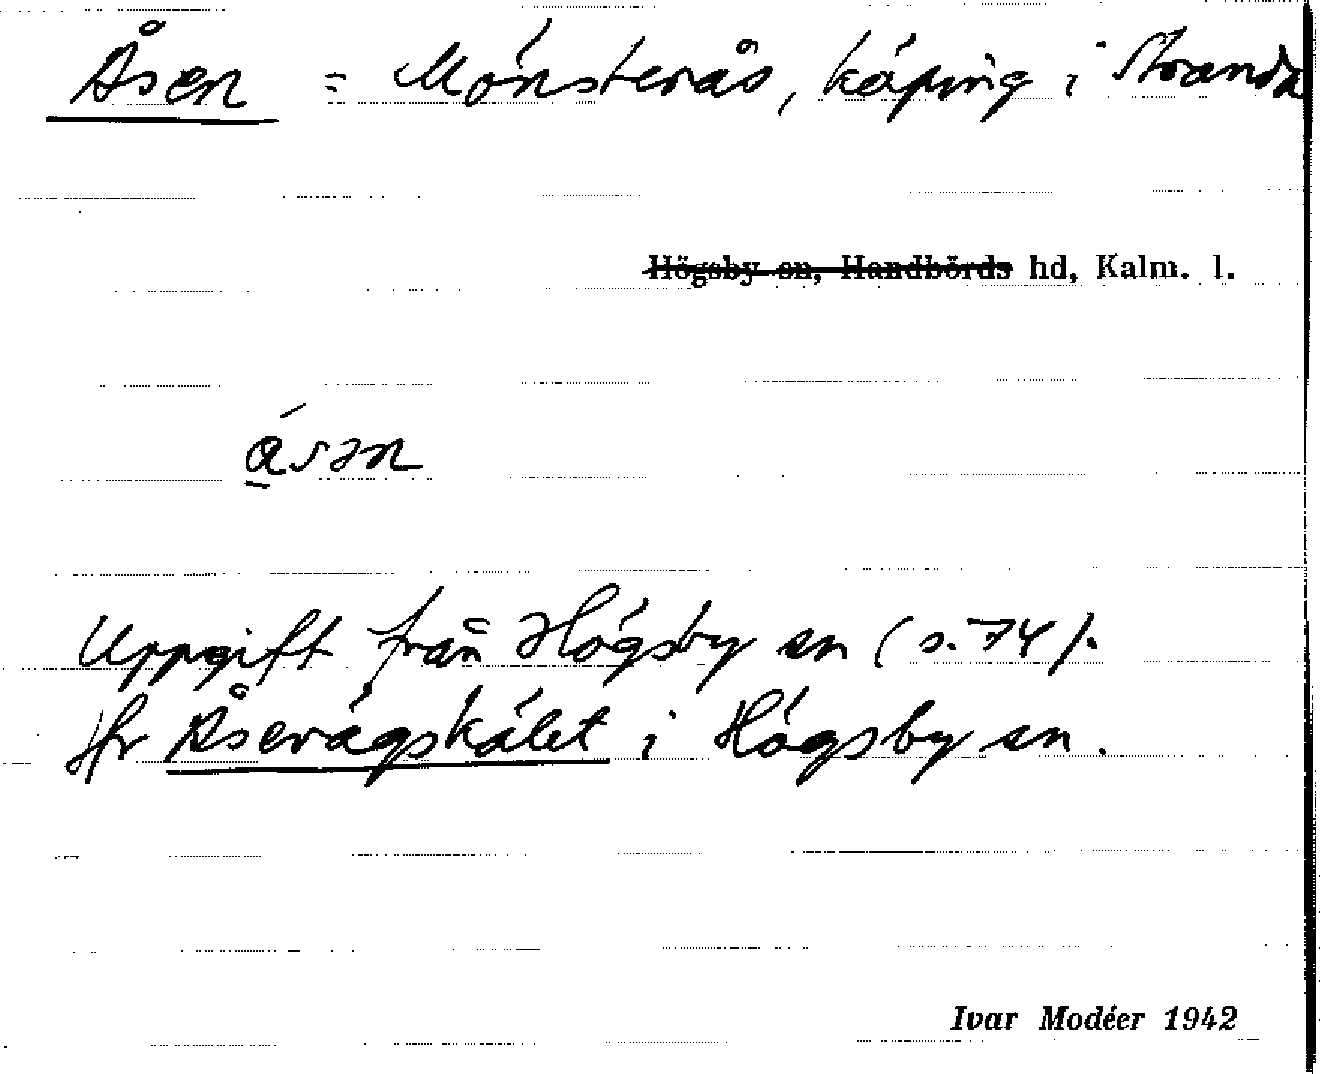 Åsen = Mönsterås, köping i Stranda
Högsby sn, Handbörds hd, Kalm. l.
ásən
Uppgift från Högsby sn (s. 74).
Jfr Åsevägskälet i Högsby sn.
Ivar Modéer 1942